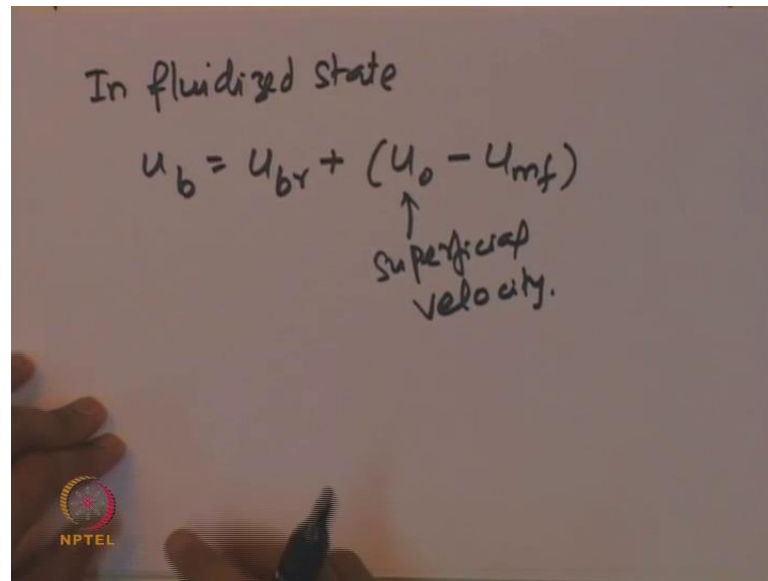 In fluidized state
u_b = u_br + (u_o - u_mf)
↑
superficial
velocity.
NPTEL